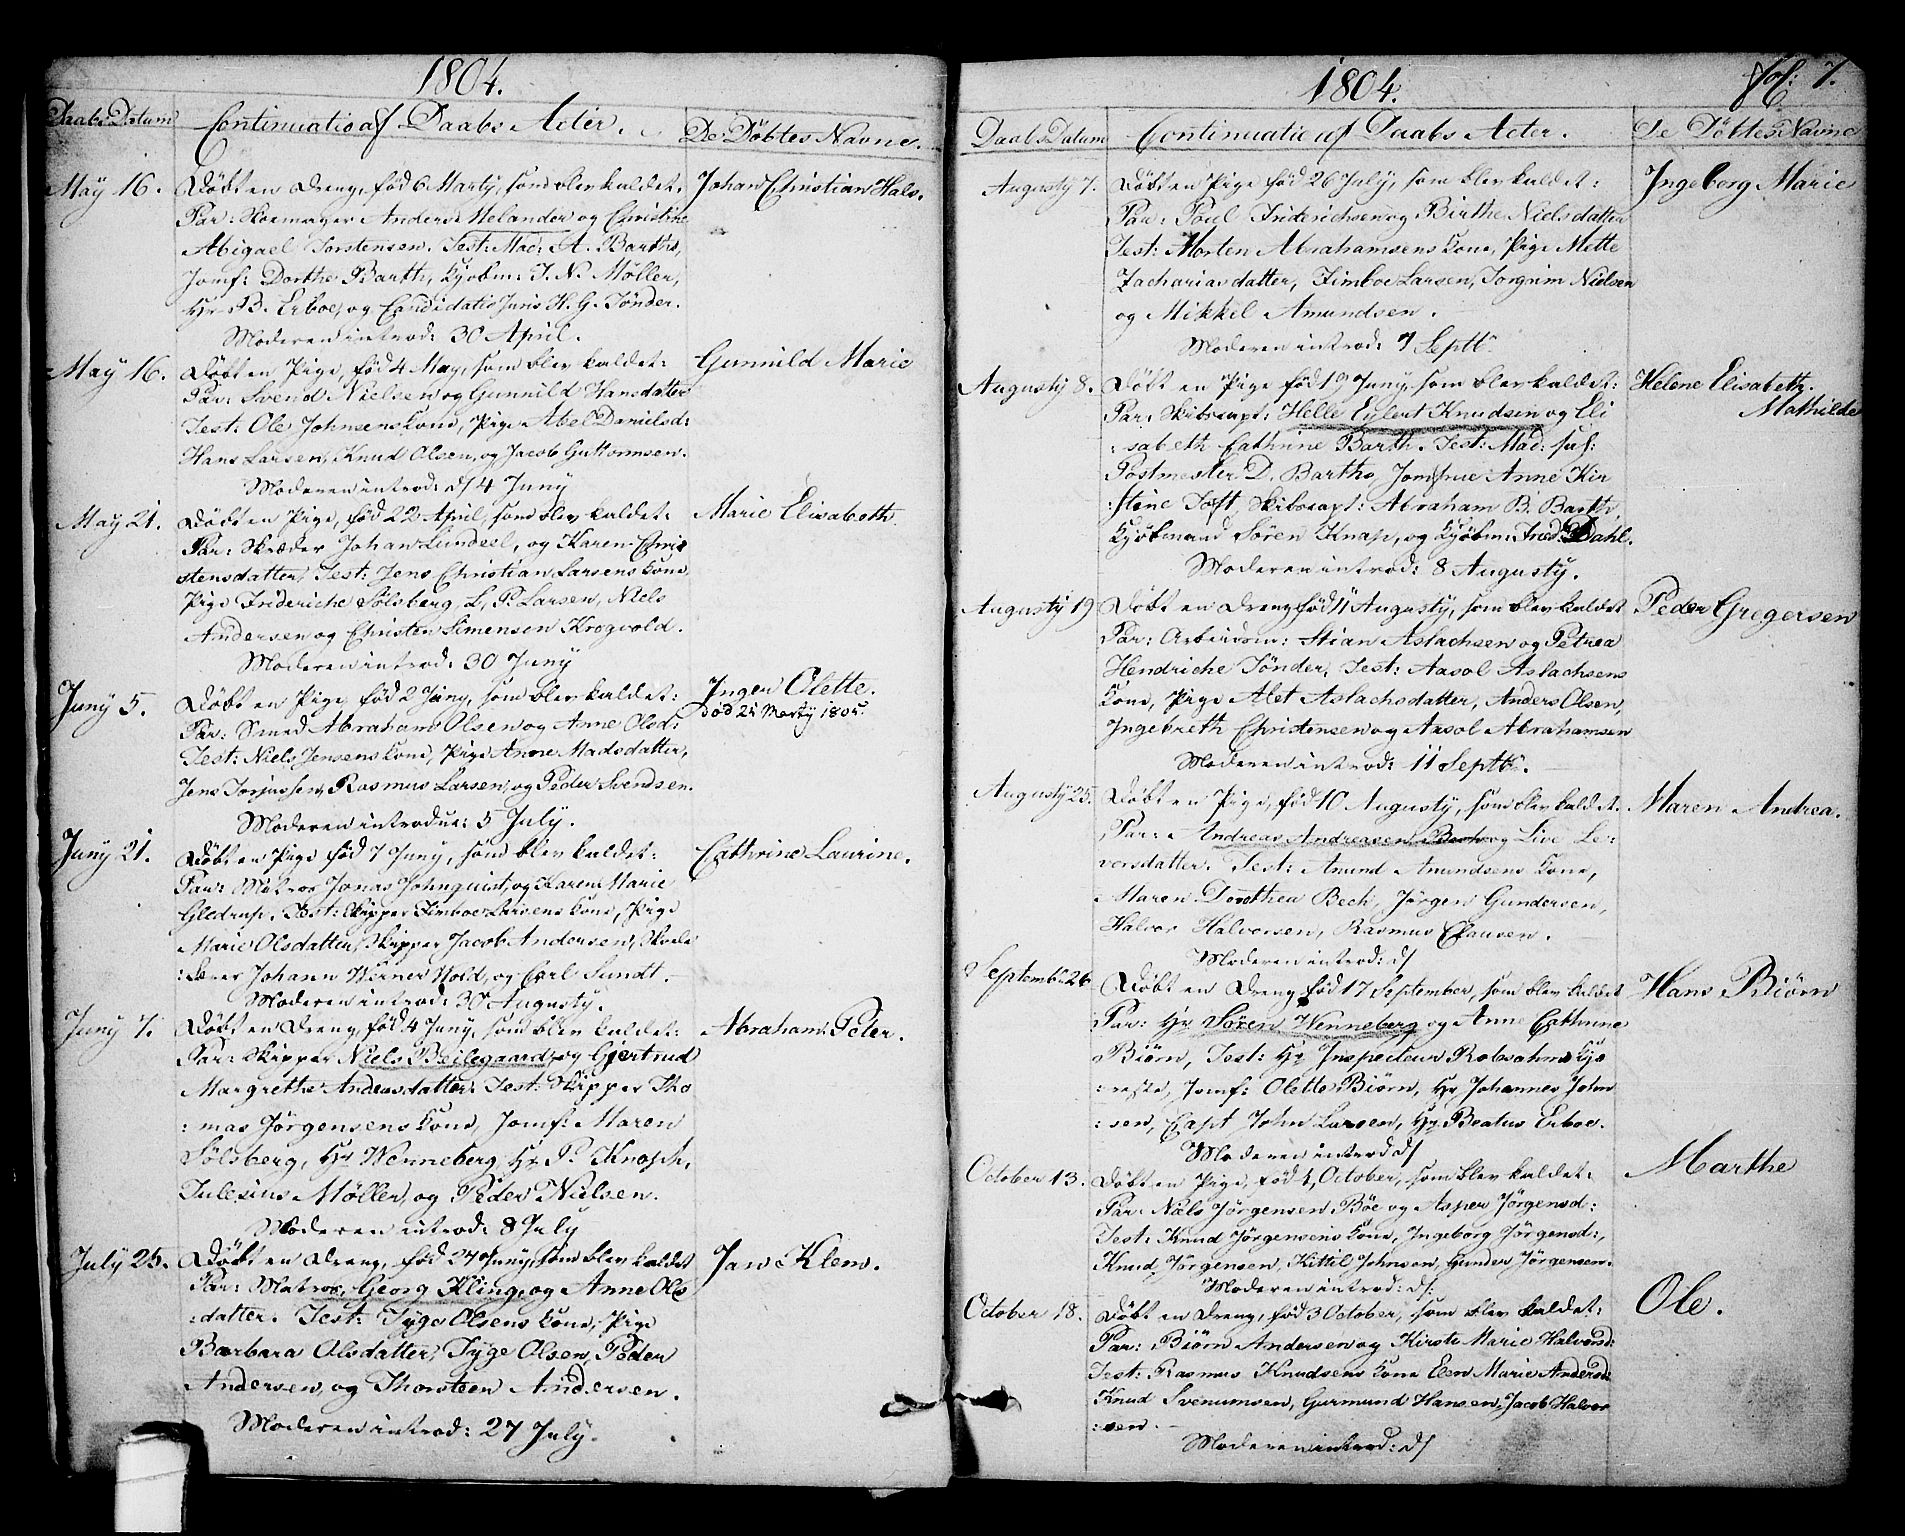 1804.
Daabs Datum
Continuatio af Daabs Acter.
De Döbtes Navne.
May 16.
Döbt en Dreng, föd 6 Marty, som blev kaldet.
Johan Christian Hals.
Par: Skoemager Anders Melander og Christine
Abigael Torstensen. Test: Mad: A. Barths,
Jomf: Dorthe Barth, Kjöbm: J. N. Møller,
Hr B. Erboe, og Candidatis Juris H. G. Tönder.
Moderen introd: 30 April.
May 16.
Döbt en Pige, föd 4 May, som blev kaldet:
Gunnild Marie
Par: Svend Nielsen og Gunnild Hansdatter
Test: Ole Johnsens Kone, Pige Abel Danielsd:
Hans Larsen, Knud Olsen, og Jacob Guttormsen.
Moderen introd: d/ 4 Juny
May 21.
Döbt en Pige, föd 22 April, som blev kaldet:
Marie Elisabeth
Par: Skræder Johan Lundeel, og Karen Chri
stensdatter, Test: Jens Christian Larsens Kone,
Pige Frideriche Sölsberg, L. P. Larsen, Niels
Andersen og Christen Simensen Krogvold.
Moderen introd: 30 Juny
Juny 5.
Döbt en Pige föd 2 Juny, som blev kaldet:
Inger Olette.
död 21 Marty 1805.
Par: Smed Abraham Olsen og Anne Olsd:
Test: Niels Jensens Kone, Pige Anne Madsdatter,
Jens Torjussen, Rasmus Larsen, og Peder Svendsen.
Moderen introdue: 5 July.
Juny 21.
Döbt en Pige föd 7 Juny, som blev kaldet:
Cathrine Laurine.
Par: Matros Jonas Johnquist, og Karen Marie
Gledrup. Test: Skipper Zimboe Larsens Kone, Pige
Marie Olsdatter, Skipper Jacob Andersen, Skole
:Lærer Johann Werner Nold, og Carl Sundt.
Moderen introd: 30 Augusty.
Juny 7.
Döbt en Dreng, föd 4 Juny, som blev kaldet:
Abraham Peter.
Par: Skipper Niels Beilegaard, og Gjertrud
Margrethe Andersdatter. Test: Skipper Tho
:mas Jörgensens Kone, Jomf: Maren
Sölsberg, Hr Wenneberg, Hr P. Knoph,
Julesius Møller, og Peder Nielsen.
Moderen introd: 8 July
July 25.
Döbt en Dreng, föd 27 Juny, som blev kaldet
Jan Klen.
Par: Matros, Georg Kling, og Anne Ols
:datter. Test: Tyge Olsens Kone, Pige
Barbara Olsdatter, Tyge Olsen, Peder
Andersen, og Thorsteen Andersen.
Moderen introd: 27 July.
1804.
Fol: 7.
Daabs Datum
Continuatio af Daabs Acter.
De Döbtes Navne
Augusty 7.
Döbt en Pige föd 26 July, som blev kaldet:
Ingeborg Marie
Par: Poul Friderichsen og Birthe Nielsdatter
Test: Morten Abrahamsens Kone, Pige Mette
Zachariasdatter, Zimboe Larsen, Torgrim Nielsen
og Mikkel Amundsen.
Moderen introd: 7 Septb.
Augusty 8.
Döbt en Pige föd 19 Juny, som blev kaldet:
Helene Elisabeth.
Mathilde
Par: Skibscapt: Helle Eylert Knudsen og Eli
:sabeth Cathrine Barth. Test: Mad: sal:
Postmester D. Barths, Jomfrue Anne Kir
:stine Toft, Skibscapt: Abraham B. Barth,
Kjöbmand Sören Knap, og Kjöbm: Fred: Dahl.
Moderen introd: 8 Augusty.
Augusty 19
Döbt en Dreng föd 11 Augusty, som blev kaldet
Peder Gregersen
Par: Arbeidsm: Stian Aslachsen og Petrea
Hendriche Tönder, Test: Aasol Aslachsens
Kone, Pige Alet Aslachsdatter, Anders Olsen,
Ingebreth Christensen og Aasol Abrahamsen
Moderen introd: 11 Septb.
Augusty 25.
Döbt en Pige, föd 10 Augusty, som blev kaldet.
Maren Andrea.
Par: Andreas Andreasen Bech og Live Le:
versdatter. Test: Amund Amundsens Kone,
Maren Dorothea Bech, Jörgen Gundersen,
Halvor Halvorsen, Rasmus Clausen.
Moderen introd: d/
September 26
Döbt en Dreng föd 17 September, som blev kaldet
Hans Biörn
Par: Hr Sören Wenneberg og Anne Cathrine
Biörn, Test: Hr Inspecteur Robsahms Kjæ
:reste, Jomf: Olette Biörn, Hr Johannes John
:sen, Capt John Larsen, Hr Beatus Erboe.
Moderen introd d/
October 13.
Döbt en Pige, föd 1, October, som blev kaldet:
Marthe
Par: Niels Jörgensen Böe og Asper Jörgensd:
Test: Knud Jörgensens Kone, Ingeborg Jörgensd:,
Knud Jörgensen, Kittil Johnsen, Gunder Jörgensen.
Moderen introd: d/:
October 18.
Döbt en Dreng, föd 3 October, som blev kaldet:
Ole.
Par: Biörn Andersen og Kirste Marie Halvorsd:
Test: Rasmus Knudsens Kone Elen Marie Andersd:
Knud Svenumsen, Gurmund Hansen, Jacob Halvor
:sen.
Moderen introd: d/